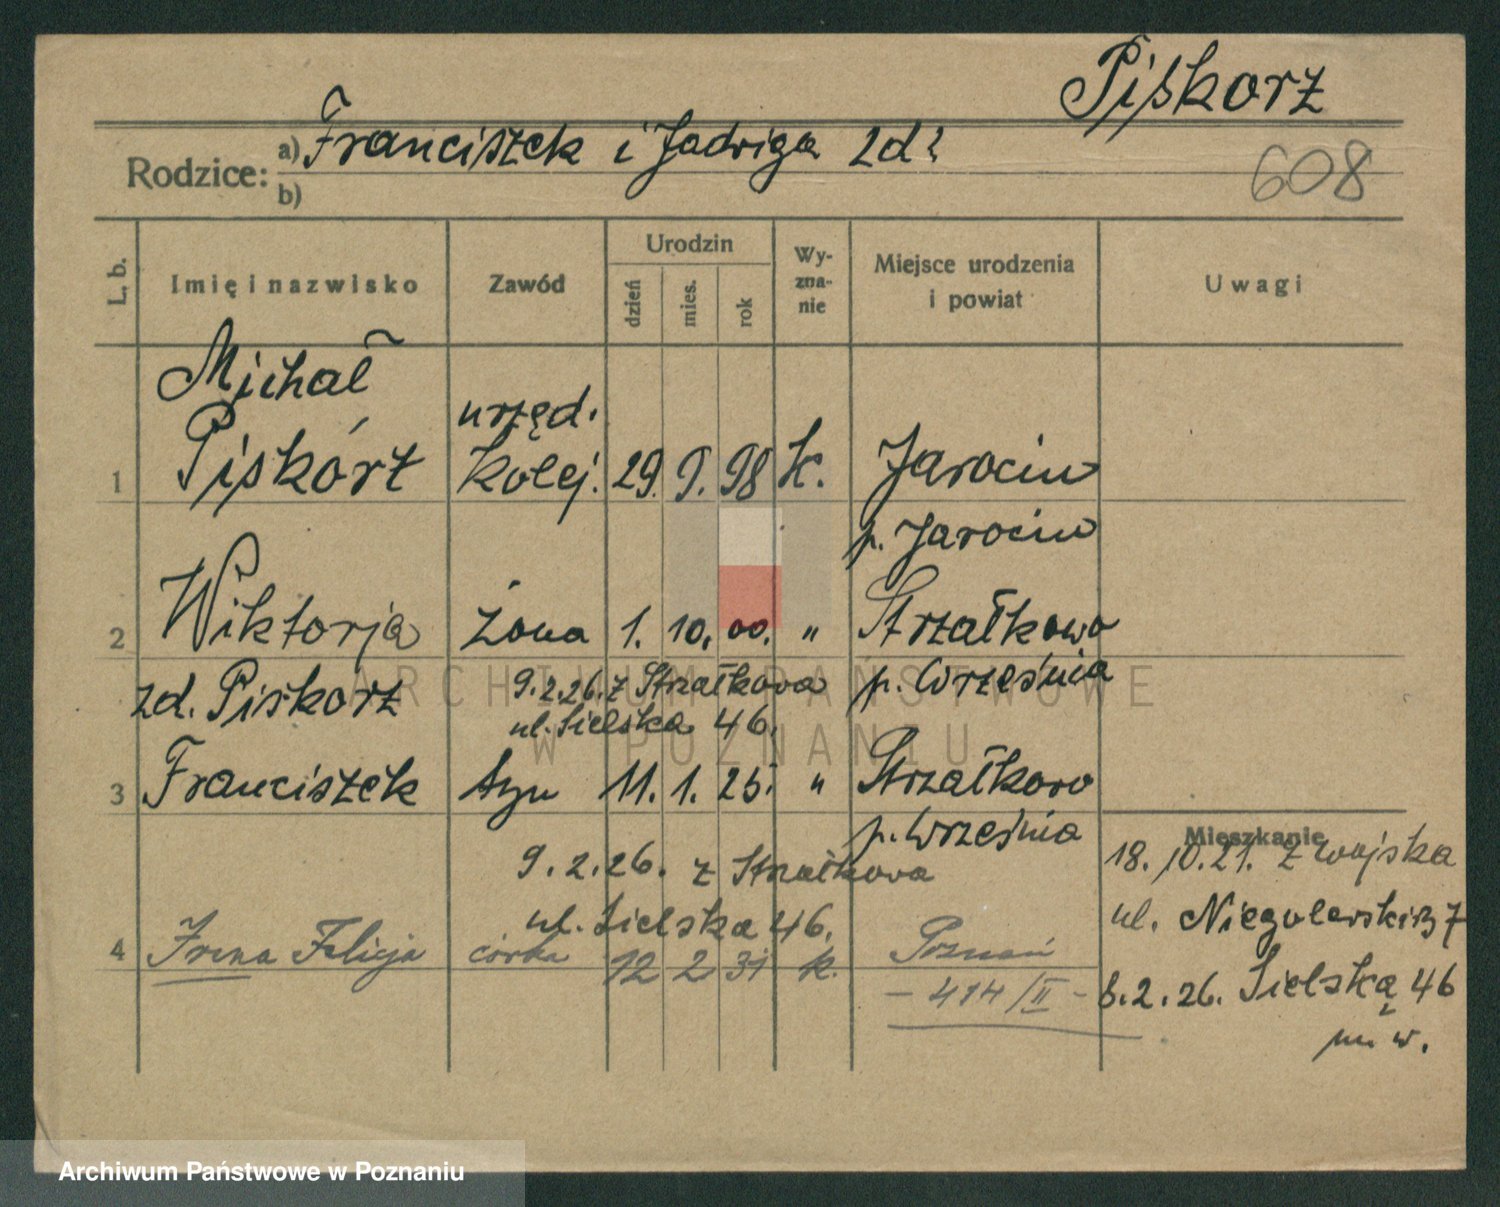 Piskorz
Rodzice: a) Franciszek i Jadwiga zd?
b)
608
L. b.
Imię i nazwisko
Zawód
Urodzin
dzień
mies.
rok
Wy-
zna-
nie
Miejsce urodzenia
i powiat
Uwagi
Michał
urzęd.
1 Piskórz kolej. 29. 9. 98 K. Jarocin
p. Jarocin
2 Wiktorja żona 1. 10. 00. " Strzałkowo
zd. Piskorz 9.2.26. z Strzałkowa p. Września
ul. Sielska 46.
3 Franciszek syn 11. 1. 25. " Strzałkowo
p. Września
9.2.26. z Strzałkowa
ul. Sielska 46.
4 Irena Felicja córka 12 2 31 k. Poznań
- 414/II -
Mieszkanie
18.10.21. z wojska
ul. 7
8.2.26. Sielska 46
m. w.
ARCHIWUM PAŃSTWOWE
W POZNANIU
Archiwum Państwowe w Poznaniu